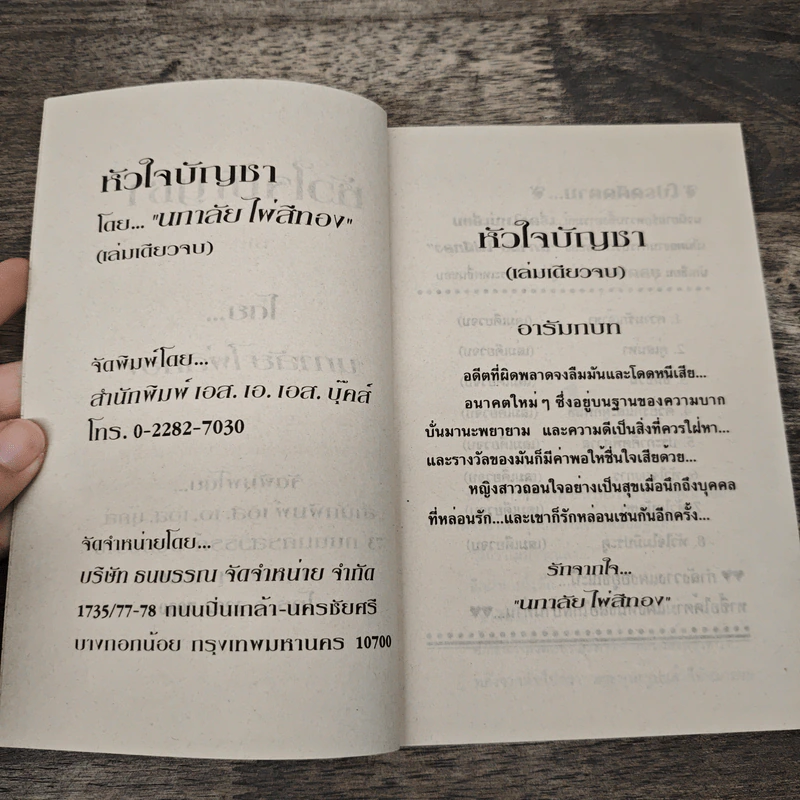 หัวใจบัญชา
โดย... "นภาลัย ไผ่สีทอง"
(เล่มเดียวจบ)
จัดพิมพ์โดย...
สำนักพิมพ์ เอส. เอ. เอส. บุ๊คส์
โทร. 0-2282-7030
จัดจำหน่ายโดย...
บริษัท ธนบรรณ จัดจำหน่าย จำกัด
1735/77-78 ถนนปิ่นเกล้า-นครชัยศรี
บางกอกน้อย กรุงเทพมหานคร 10700
หัวใจบัญชา
(เล่มเดียวจบ)
อารัมภบท
อดีตที่ผิดพลาดจงลืมมันและโดดหนีเสีย...
อนาคตใหม่ ๆ ซึ่งอยู่บนฐานของความบาก
บั่นมานะพยายาม และความดีเป็นสิ่งที่ควรใฝ่หา...
และรางวัลของมันก็มีค่าพอให้ชื่นใจเสียด้วย...
หญิงสาวถอนใจอย่างเป็นสุขเมื่อนึกถึงบุคคล
ที่หล่อนรัก...และเขาก็รักหล่อนเช่นกันอีกครั้ง...
รักจากใจ...
"นภาลัย ไผ่สีทอง"